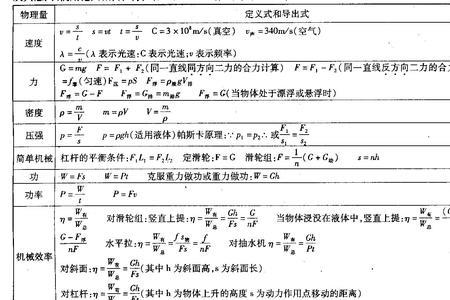 物理量 定义式和导出式
速度 v=s/t s=vt t=s/v C=3×10⁸m/s(真空) v声=340m/s(空气)
λ=c/v(λ表示光速;C表示光速;v表示频率)
力 G=mg F=F₁+F₂(同一直线同方向二力的合力计算) F=F₁-F₂(同一直线反方向二力的合力
=f(匀速)F压=pS F浮=ρ液gV排
F浮=G-F F浮=G排=m排g F浮=G(当物体处于漂浮或悬浮时)
密度 ρ=m/V m=ρV V=m/ρ
压强 p=F/s p=ρgh(适用液体)帕斯卡原理:∵p₁=p₂∴或F₁/s₁=F₂/s₂
简单机械 杠杆的平衡条件:F₁L₁=F₂L₂ 定滑轮:F=G 滑轮组:F=1/n(G+G动) s=nh
功 W=Fs W=Pt 克服重力做功或重力做功:W=Gh
功率 P=W/t P=Fv
机械效率 η=W有/W总 对滑轮组:竖直上提:η=W有/W总=Gh/Fs=G/nF 当物体浸没在液体中,竖直上提:η=W有/W总=
G-F浮/nF 水平拉:η=W有/W总=fs物/Fs=f/nF 对抽水机η=W有/W总=Gh/Pt
对斜面:η=W有/W总=Gh/Fs(其中h为斜面高,s为斜面长)
对杠杆:η=W有/W总=Gh/Fs(其中h为物体上升的高度s为动力作用点移动的距离)